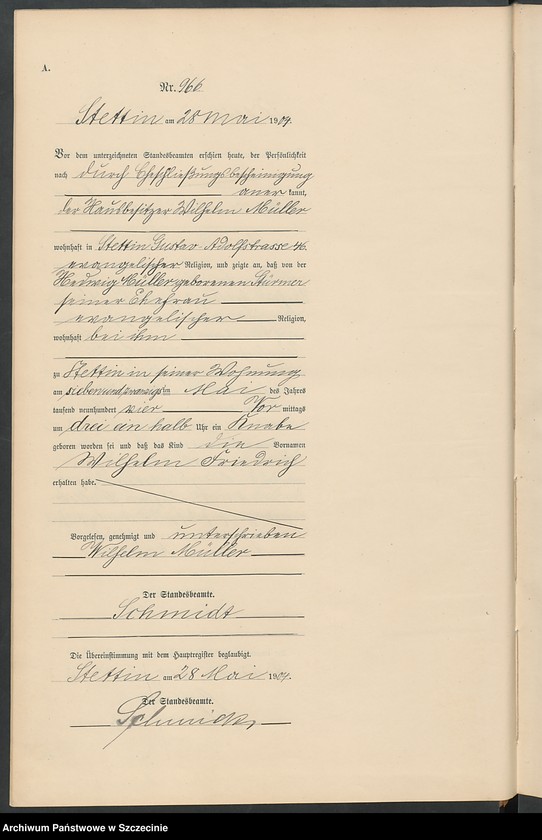 A.
Nr. 966
Stettin am 28 Mai 1904.
Vor dem unterzeichneten Standesbeamten erschien heute, der Persönlichkeit
nach durch Eheschließungsbescheinigung
anerkannt,
der Hausbesitzer Wilhelm Müller
wohnhaft in Stettin Gustav-Adolfstrasse
evangelischer Religion, und zeigte an, daß von der
Hedwig Müller geborenen Stürmer
seiner Ehefrau
evangelischer Religion,
wohnhaft bei ihm
zu Stettin in seiner Wohnung
am siebenundzwanzigsten Mai des Jahres
tausend neunhundert vier Vormittags
um drei an halb Uhr ein Knabe
geboren worden sei und daß das Kind die Vornamen
Wilhelm Friedrich
erhalten habe.
Vorgelesen, genehmigt und unterschrieben
Wilhelm Müller
Der Standesbeamte.
Schmidt
Die Übereinstimmung mit dem Hauptregister beglaubigt.
Stettin am 28 Mai 1904.
Der Standesbeamte.
Archiwum Państwowe w Szczecinie